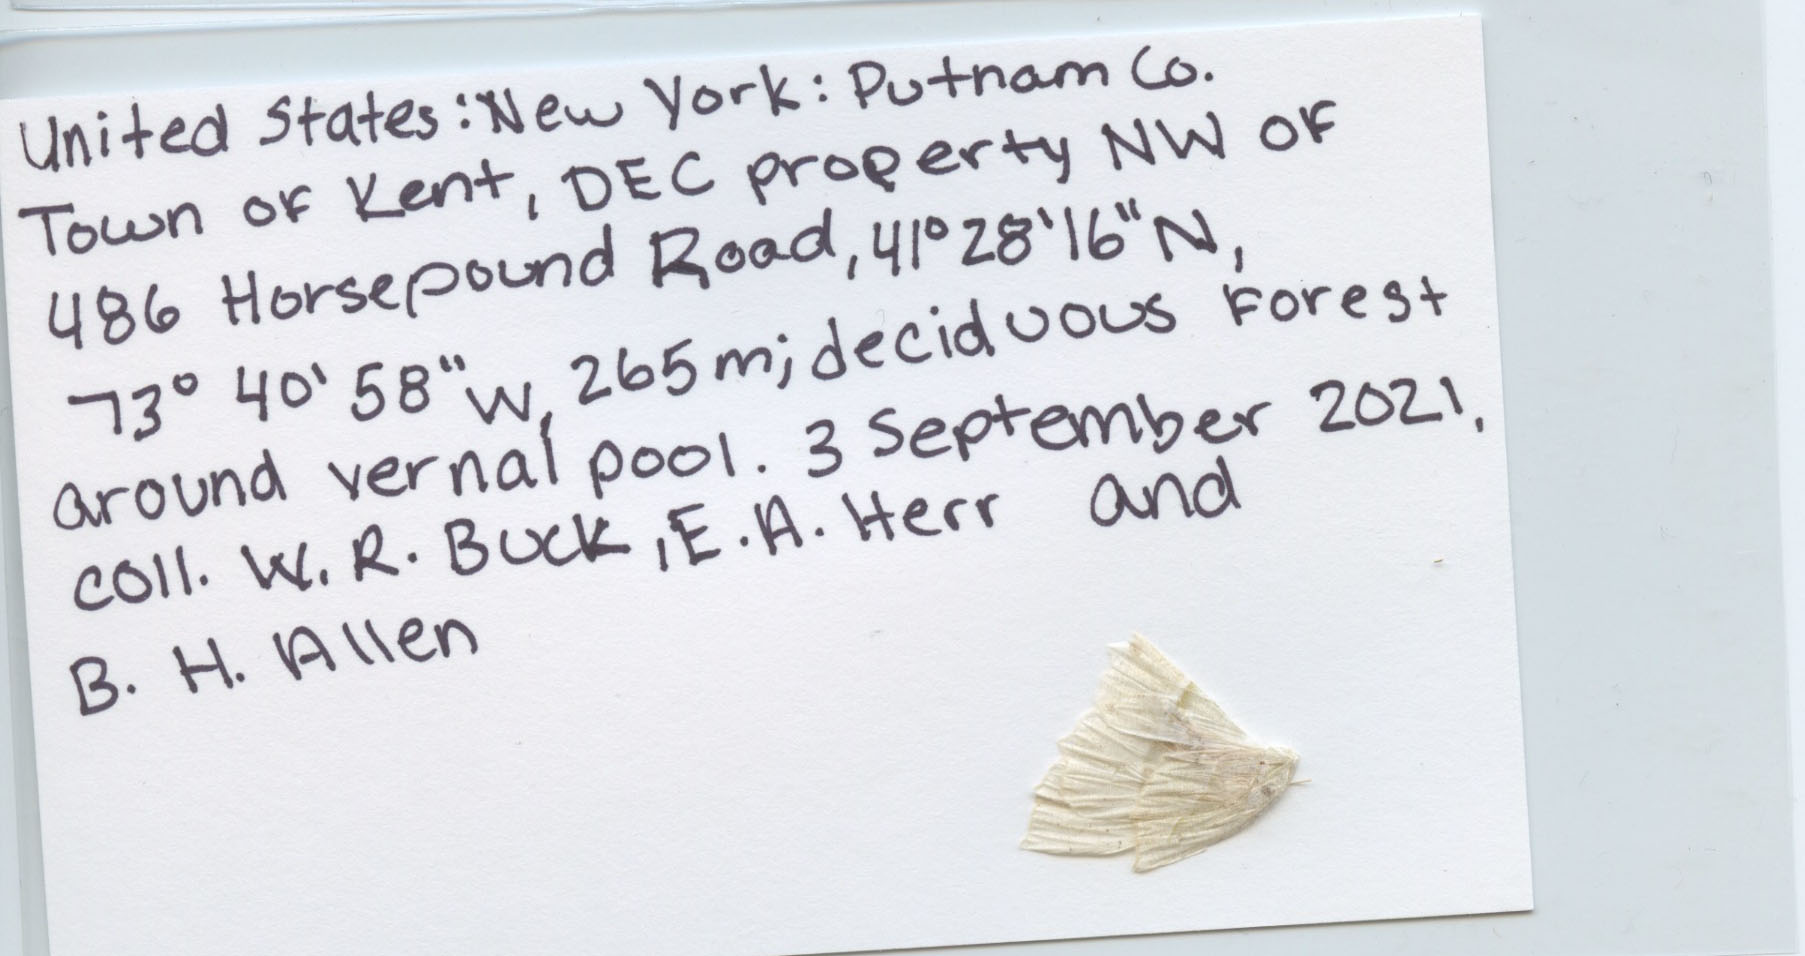 United States: New York: Putnam Co.
Town of Kent, DEC property NW of
486 Horsepound Road, 41° 28' 16" N,
73° 40' 58" W, 265 m; deciduous forest
around vernal pool. 3 September 2021,
coll. W. R. Buck, E. A. Herr and
B. H. Allen